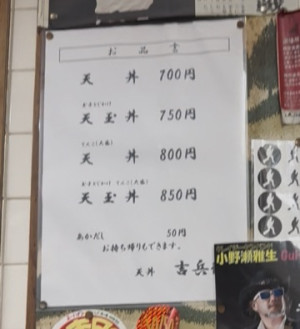 お品書
天丼 700円
天玉丼 750円
天丼 800円
天玉丼 850円
あかだし 50円
お持ち帰りもできます。
天丼 吉兵
小野瀬雅生